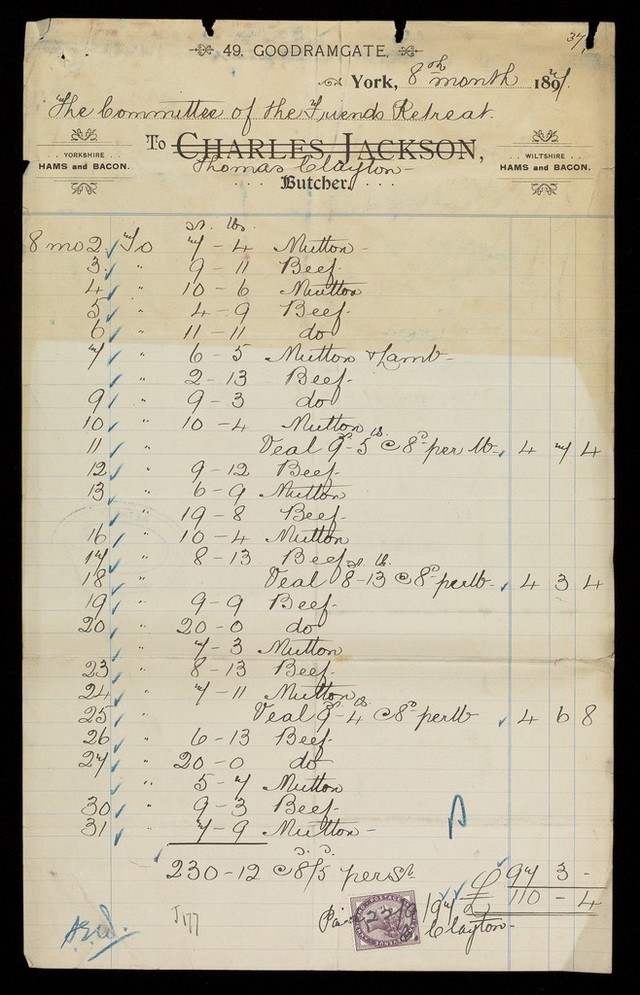 37
49. GOODRAMGATE,
York, 8th month 1897.
The Committee of the Friends Retreat.
To CHARLES JACKSON,
Thomas Clayton
Butcher.
YORKSHIRE
HAMS and BACON.
WILTSHIRE
HAMS and BACON.
st. lbs.
8 mo 2 To 7 - 4 Mutton -
3 " 9 - 11 Beef.
4 " 10 - 6 Mutton
5 " 4 - 9 Beef.
6 " 11 - 11 do
7 " 6 - 5 Mutton & Lamb -
" 2 - 13 Beef.
9 " 9 - 3 do
10 " 10 - 4 Mutton
11 " Veal 9 st - 5 lb @ 8d per lb 4 7 4
12 " 9 - 12 Beef.
13 " 6 - 9 Mutton
" 19 - 8 Beef.
16 " 10 - 4 Mutton
17 " 8 - 13 Beef.
18 " Veal 8 st - 13 lb @ 8d per lb 4 3 4
19 " 9 - 9 Beef.
20 " 20 - 0 do
" 7 - 3 Mutton
23 " 8 - 13 Beef.
24 " 7 - 11 Mutton
25 " Veal 9 st - 4 lb @ 8d per lb 4 6 8
26 " 6 - 13 Beef.
27 " 20 - 0 do
" 5 - 7 Mutton
30 " 9 - 3 Beef.
31 " 7 - 9 Mutton -
230 - 12 @ 8/5 per St 97 3 -
£ 110 - 4
J177
Clayton -